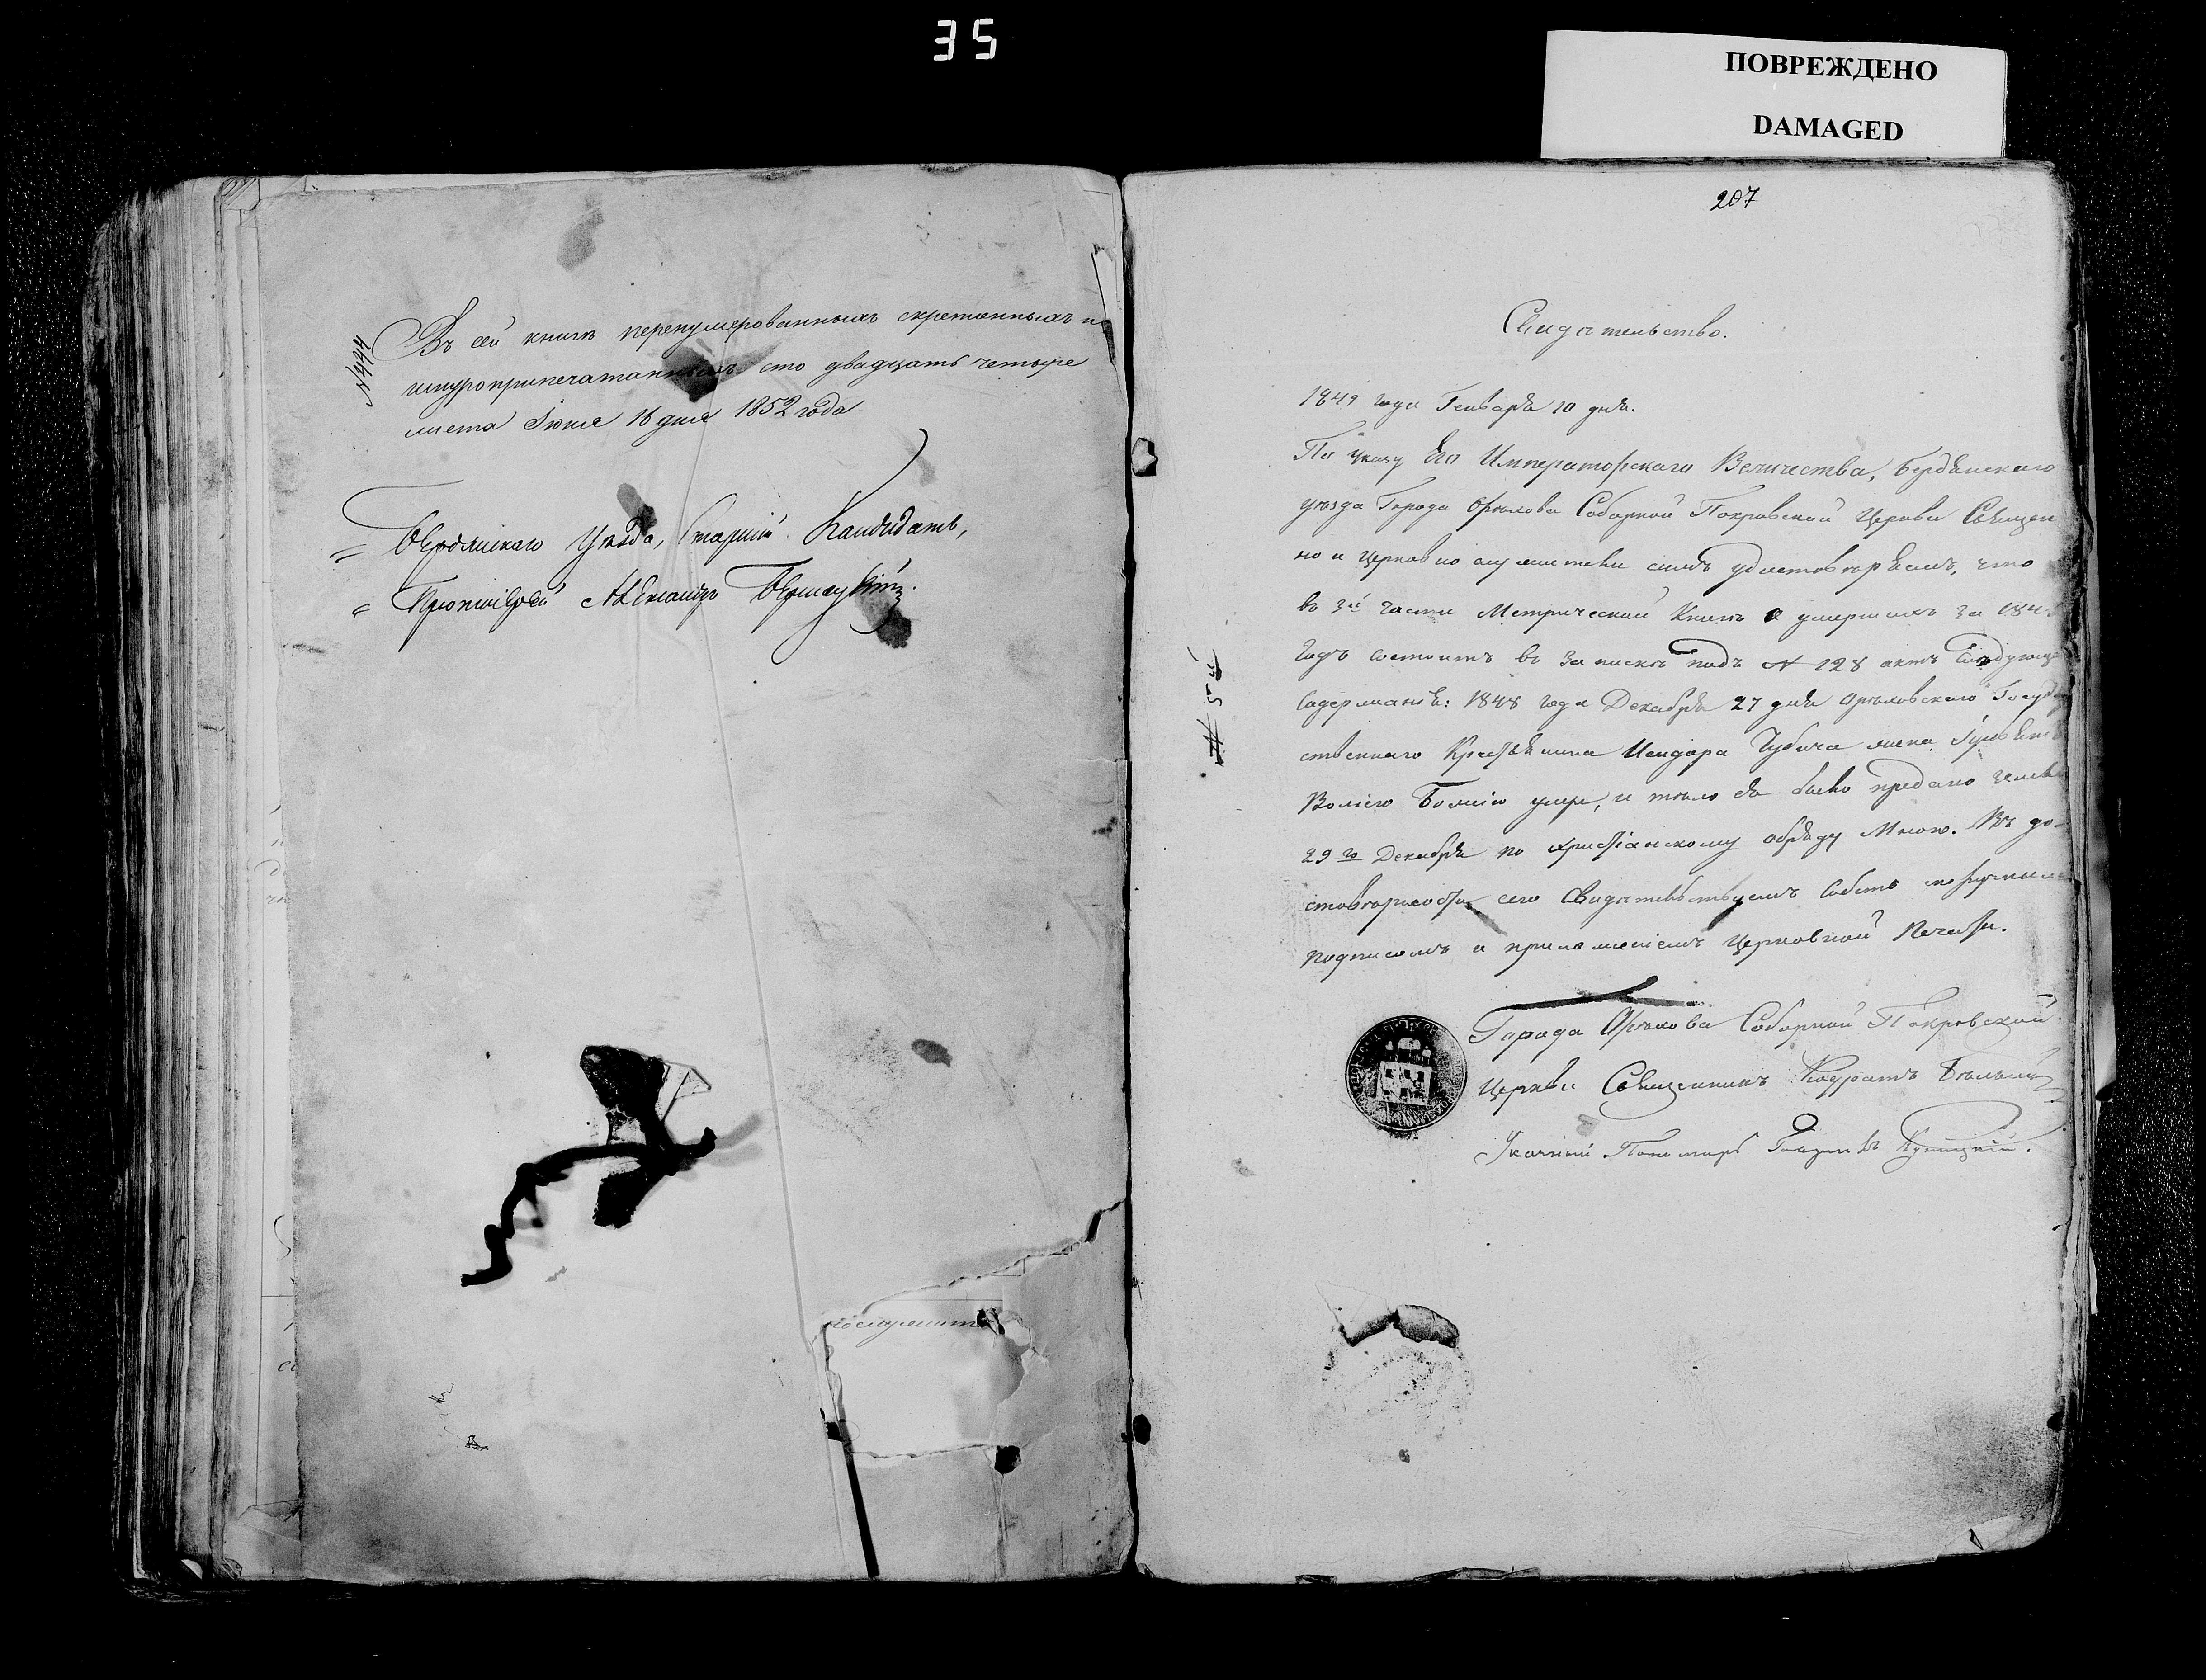 35
ПОВРЕЖДЕНО
DAMAGED
№ 444
Въ сей книгѣ перенумерованныхъ скрепенныхъ и
шнуроприпечатанныхъ сто двадцать четыре
листа Іюня 16 дня 1852 года
Бердянскаго Уѣзда, Старшій Кандидатъ,
207
Свидѣтельство.
1849 года Генваря 10 дня.
По указу Его Императорскаго Величества, Бердянскаго
уѣзда Города Орѣхова Соборной Покровской Церкви Священ
но и церковно служители симъ удостовѣряемъ, что
въ 3й части Метрической Книги о умершихъ за 184
годъ состоитъ въ запискѣ подъ № 128 актъ слѣдующа
содержанія: 1848 года Декабря 27 дня Орѣховскаго Госуда
ственнаго Крестьянина Исидора Чубича жена
Волею Божіею умре, и тѣло ея было предано земле
29го Декабря по христіанскому обряду Мною. Въ до-
стовѣрности сего свидѣтельствуемъ собств
подписомъ и приложеніемъ Церковной Печати.
№ 55
Города Орѣхова Соборной Покровской
Церкви Священникъ Кодратъ
Указный Пономарь